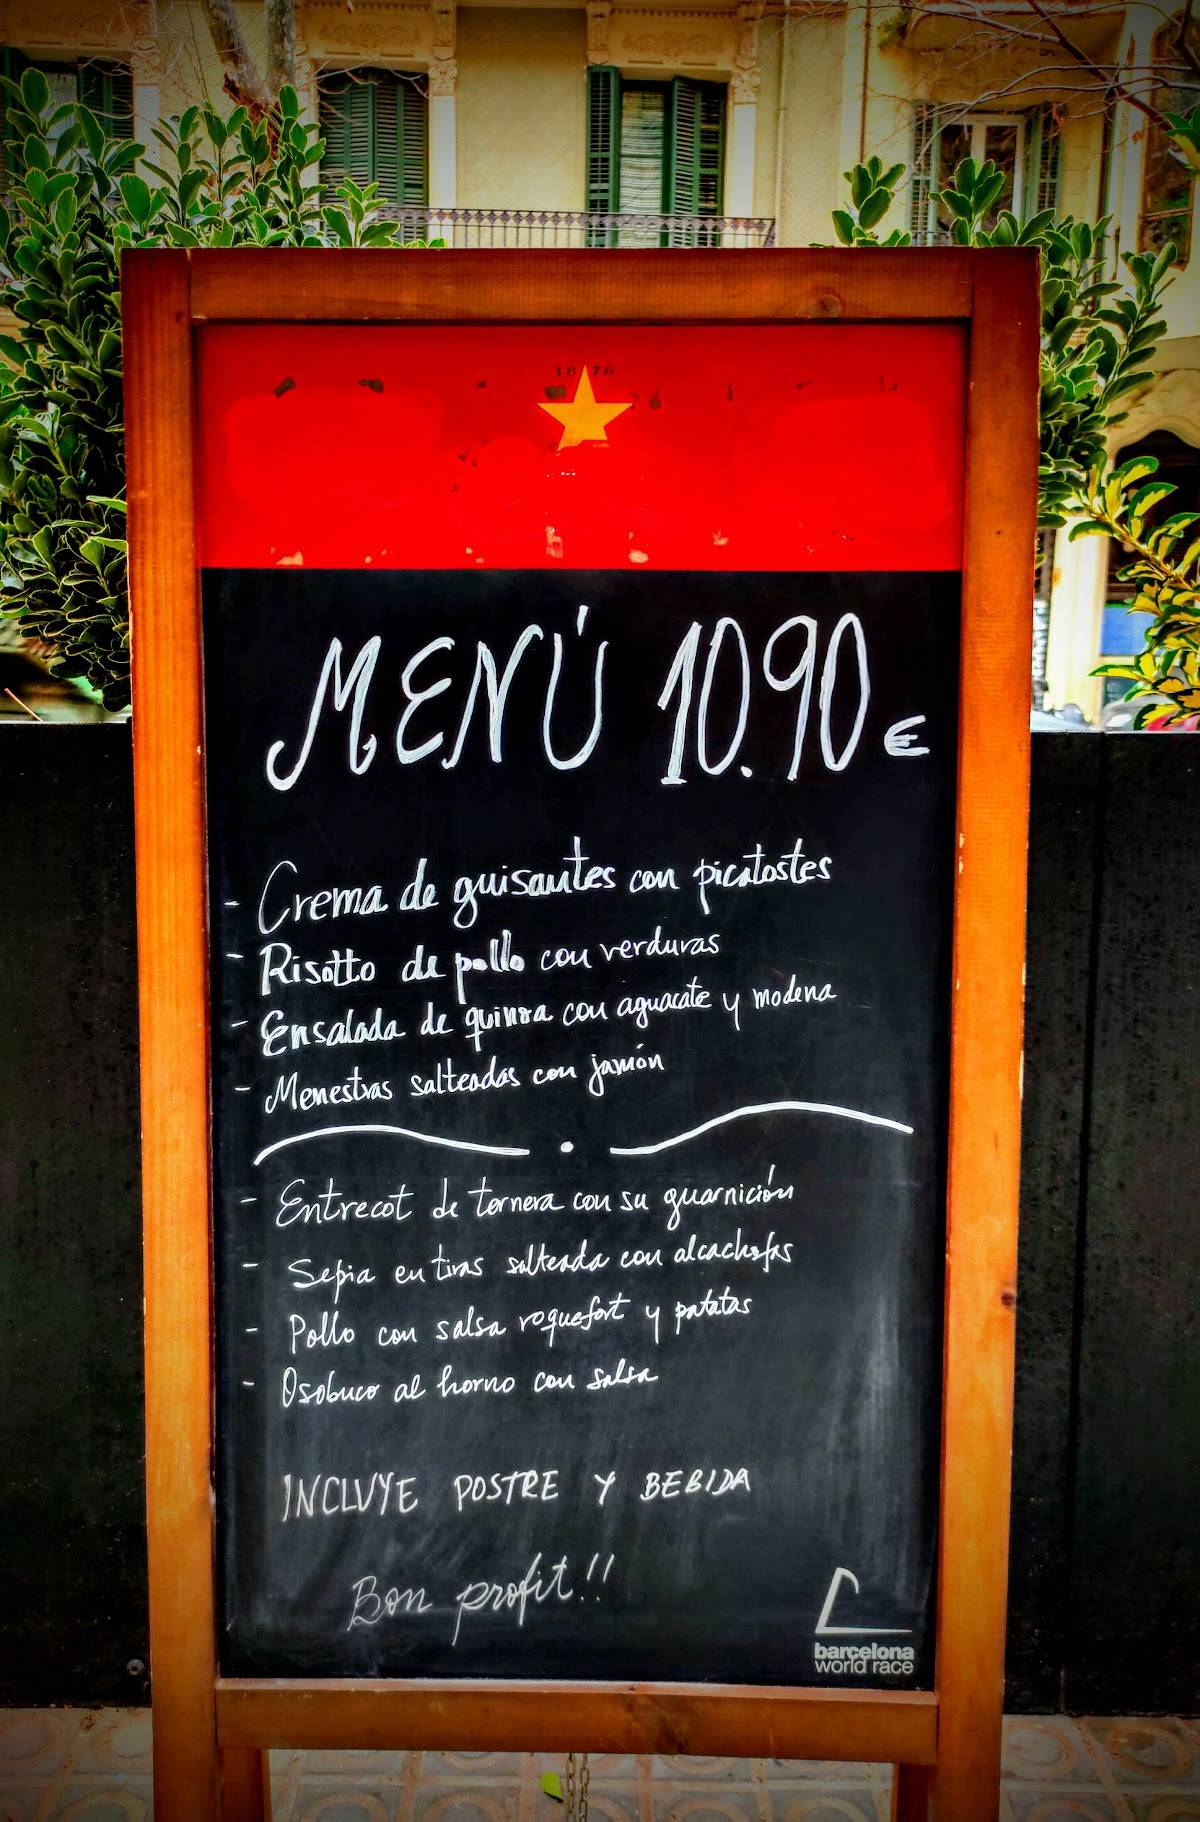 1876
MENÚ 10.90€
- Crema de guisantes con picatostes
- Risotto de pollo con verduras
- Ensalada de quinoa con aguacate y modena
- Menestras salteadas con jamón
- Entrecot de ternera con su guarnición
- Sepia en tiras salteada con alcachofas
- Pollo con salsa roquefort y patatas
- Osobuco al horno con salsa
INCLUYE POSTRE Y BEBIDA
Bon profit!!
barcelona
world race